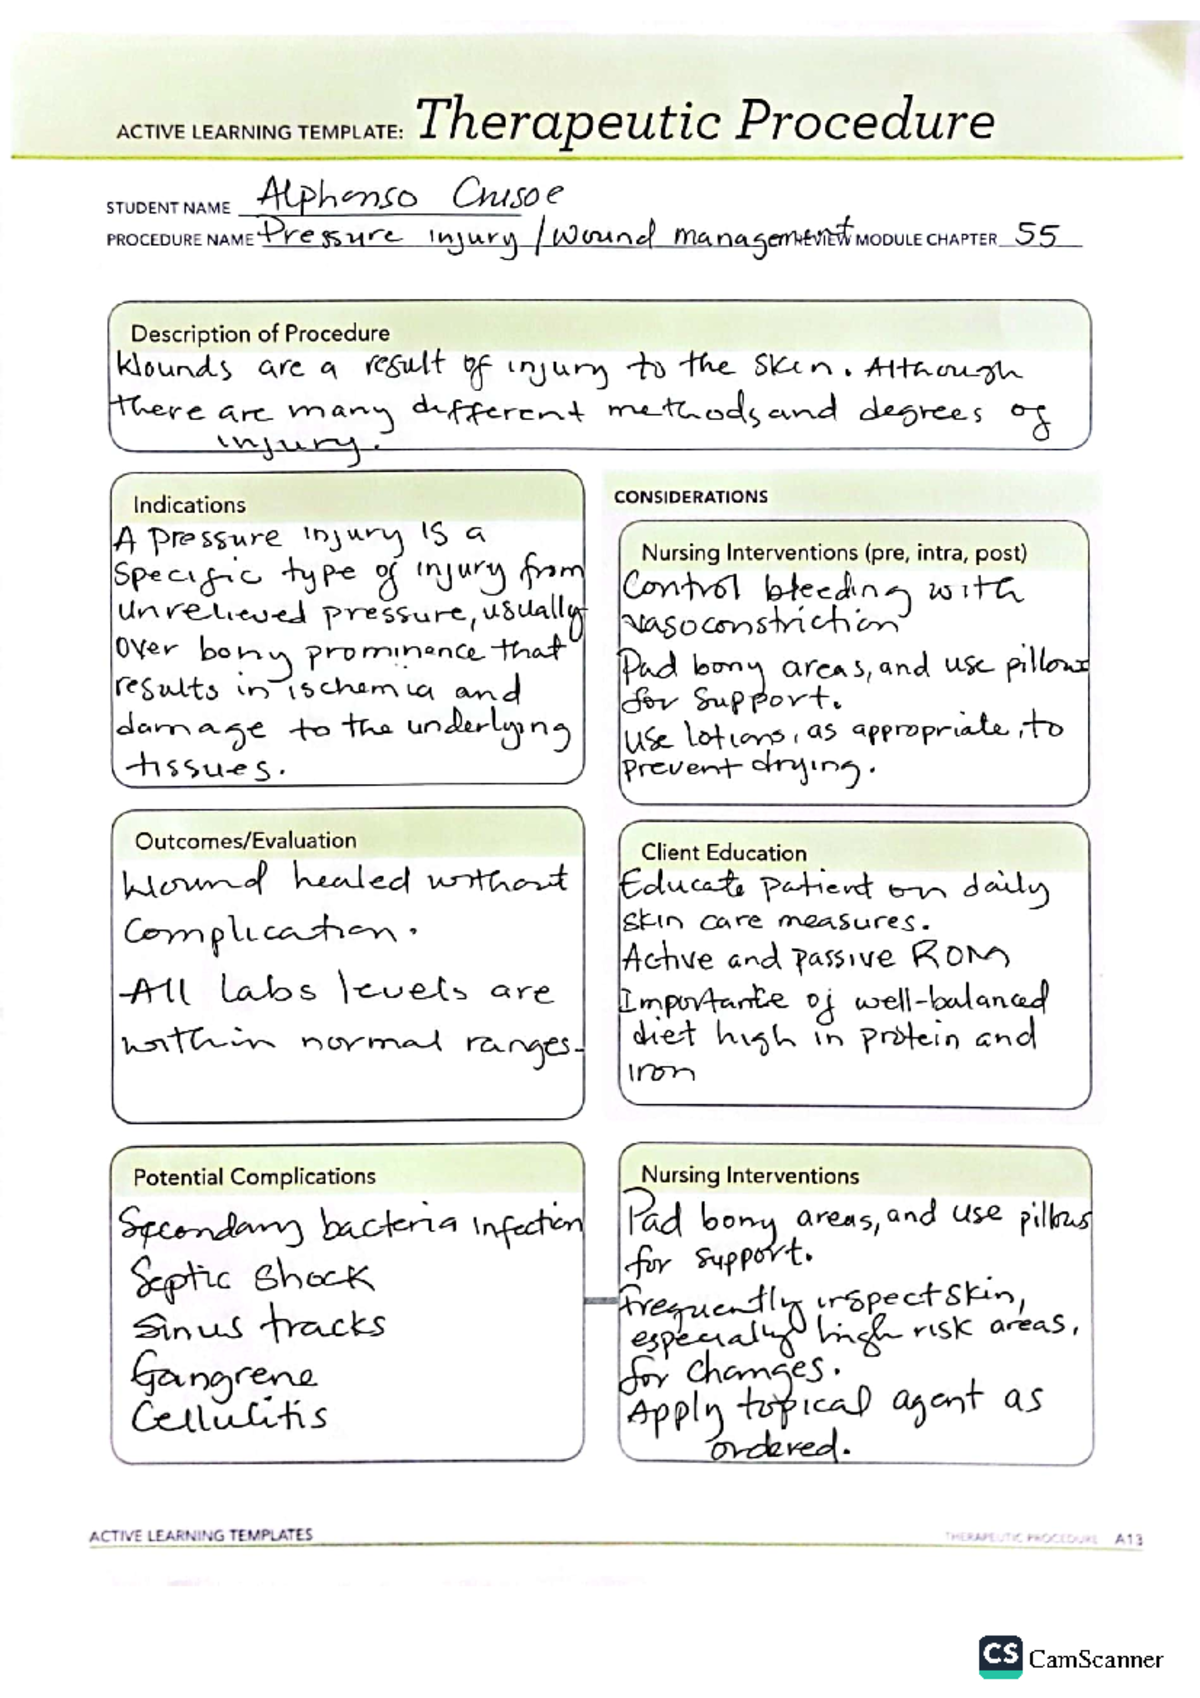 ACTIVE LEARNING TEMPLATE: Therapeutic Procedure
STUDENT NAME Alphonso Crusoe
PROCEDURE NAME Pressure injury / Wound management REVIEW MODULE CHAPTER 55
Description of Procedure
Wounds are a result of injury to the skin. Although
there are many different methods and degrees of
injury.
Indications
A pressure injury is a
specific type of injury from
unrelieved pressure, usually
over bony prominence that
results in ischemia and
damage to the underlying
tissues.
CONSIDERATIONS
Nursing Interventions (pre, intra, post)
Control bleeding with
vasoconstriction
Pad bony areas, and use pillows
for support.
use lotions, as appropriate, to
prevent drying.
Outcomes/Evaluation
Wound healed without
complication.
All labs levels are
within normal ranges.
Client Education
Educate patient on daily
skin care measures.
Active and passive ROM
Importante of well-balanced
diet high in protein and
iron
Potential Complications
Secondary bacteria infection
Septic shock
Sinus tracks
Gangrene
Cellulitis
Nursing Interventions
Pad bony areas, and use pillows
for support.
frequently inspect skin,
especially high risk areas,
for changes.
Apply topical agent as
ordered.
ACTIVE LEARNING TEMPLATES
THERAPEUTIC PROCEDURE A13
CS CamScanner